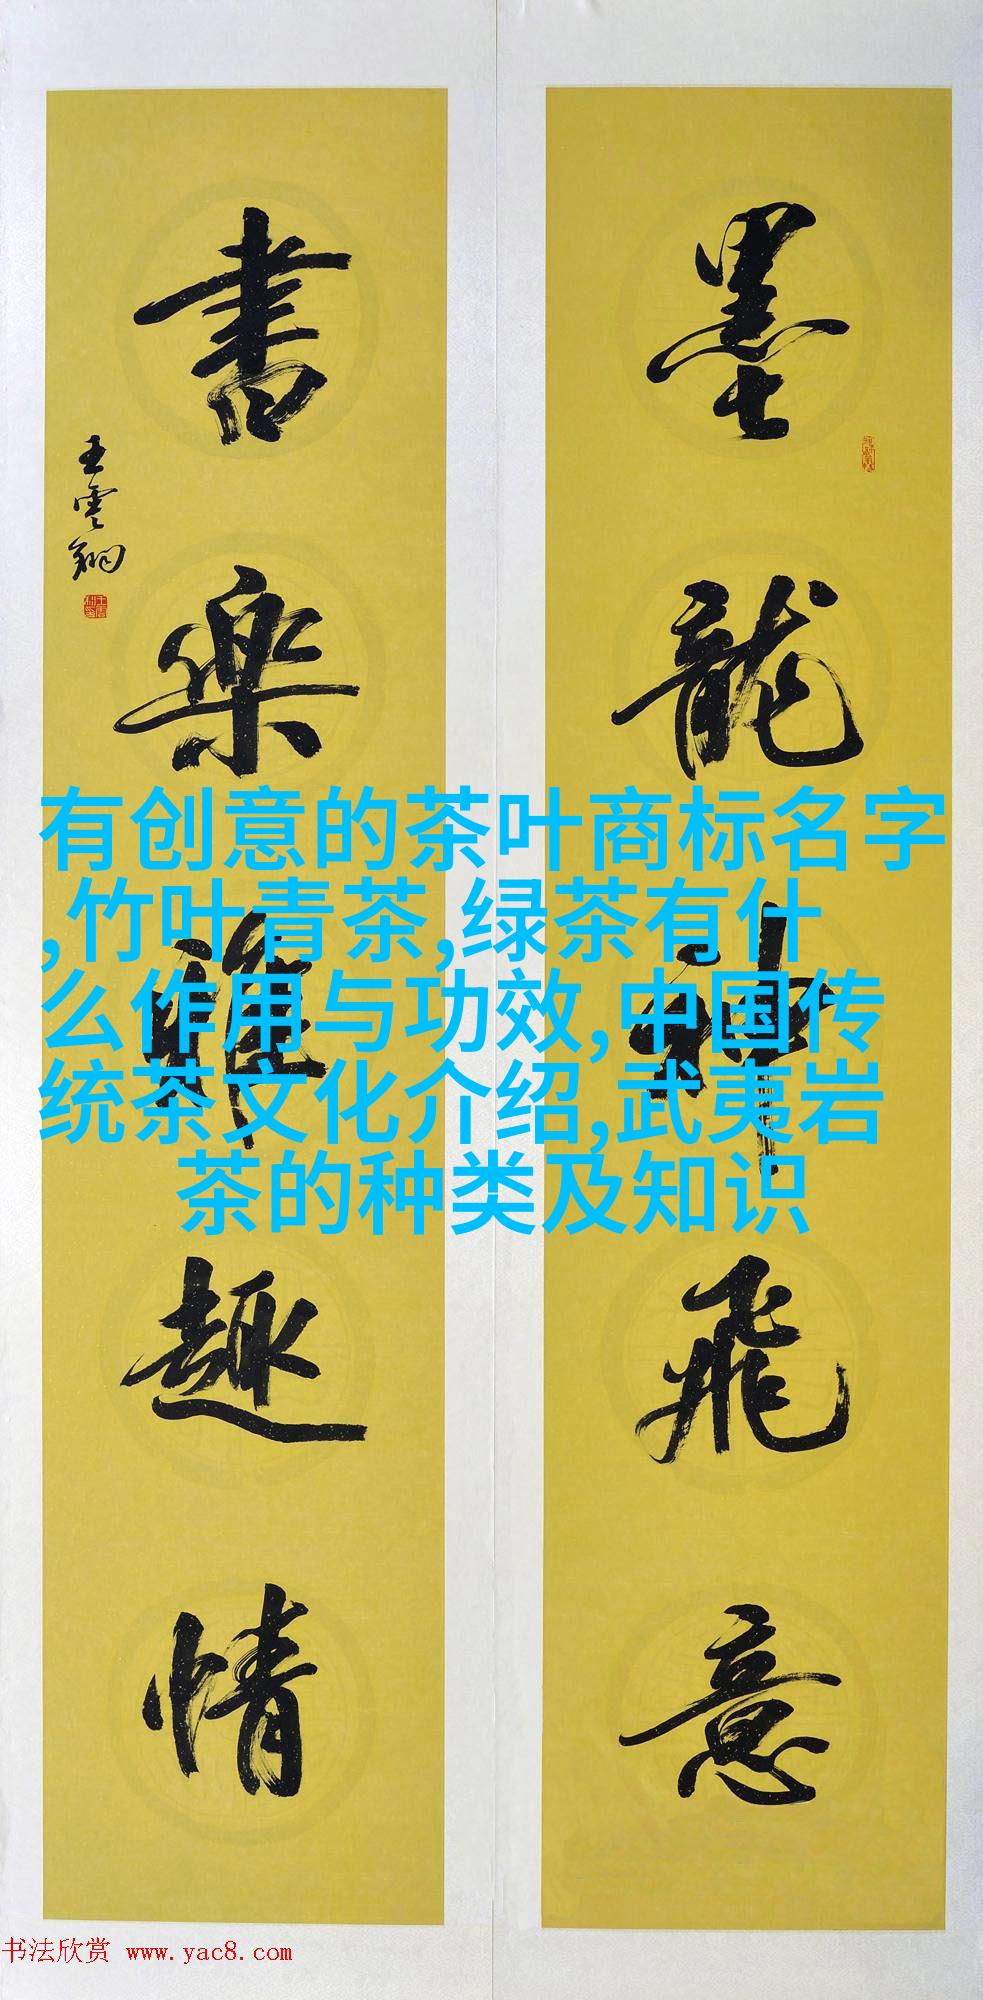 墨龍神飛意
書樂雅趣情
王雲翔
有创意的茶叶商标名字
,竹叶青茶,绿茶有什
么作用与功效,中国传
统茶文化介绍,武夷岩
茶的种类及知识
书法欣赏 www.yac8.com